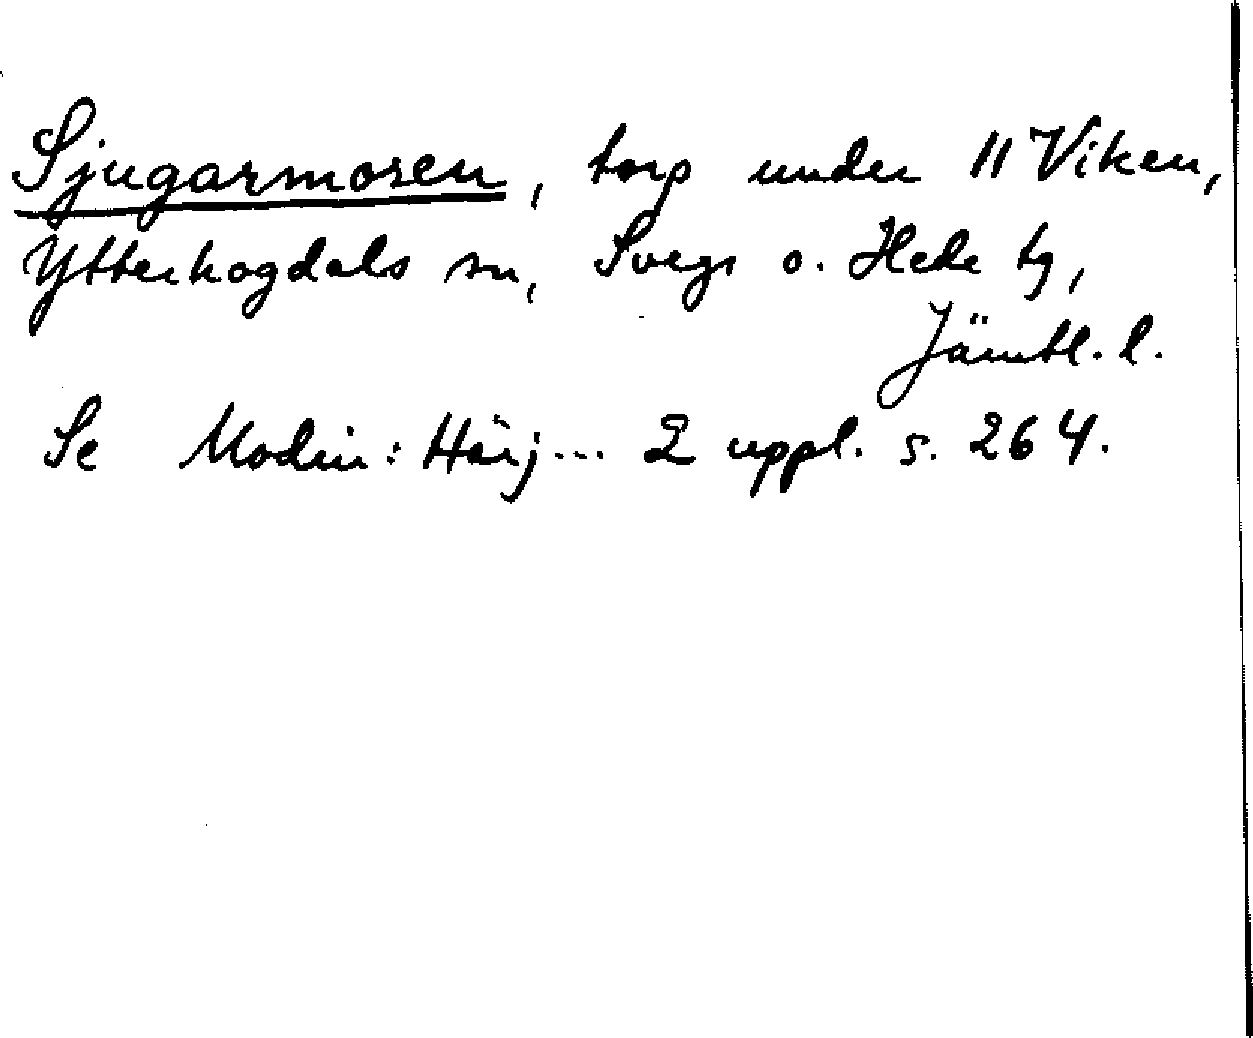 Sjugarmosen, torp under 11 Viken,
Ytterhogdals sn, Svegs o. Hede tg,
Jämtl. l.
Se Modin: Härj... 2 uppl. s. 264.